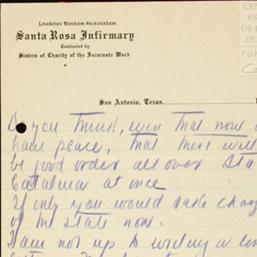 Laudetur Verbum Incarnatum
Santa Rosa Infirmary
Conducted by
Sisters of Charity of the Incarnate Word
San Antonio, Texas,
Do you think, even that now
have peace, that there will
be good order all over
at once.
If only you would take
of the State now.
I am not up to writing a